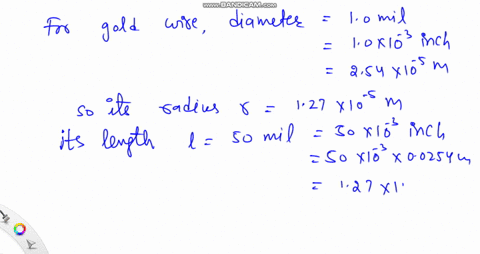 WWW.BANDICAM.COM
For gold wire, diameter = 1.0 mil
= 1.0 × 10⁻³ inch
= 2.54 × 10⁻⁵ m
so its radius r = 1.27 × 10⁻⁵ m
its length l = 50 mil = 50 × 10⁻³ inch
= 50 × 10⁻³ × 0.0254 m
= 1.27 × 1.